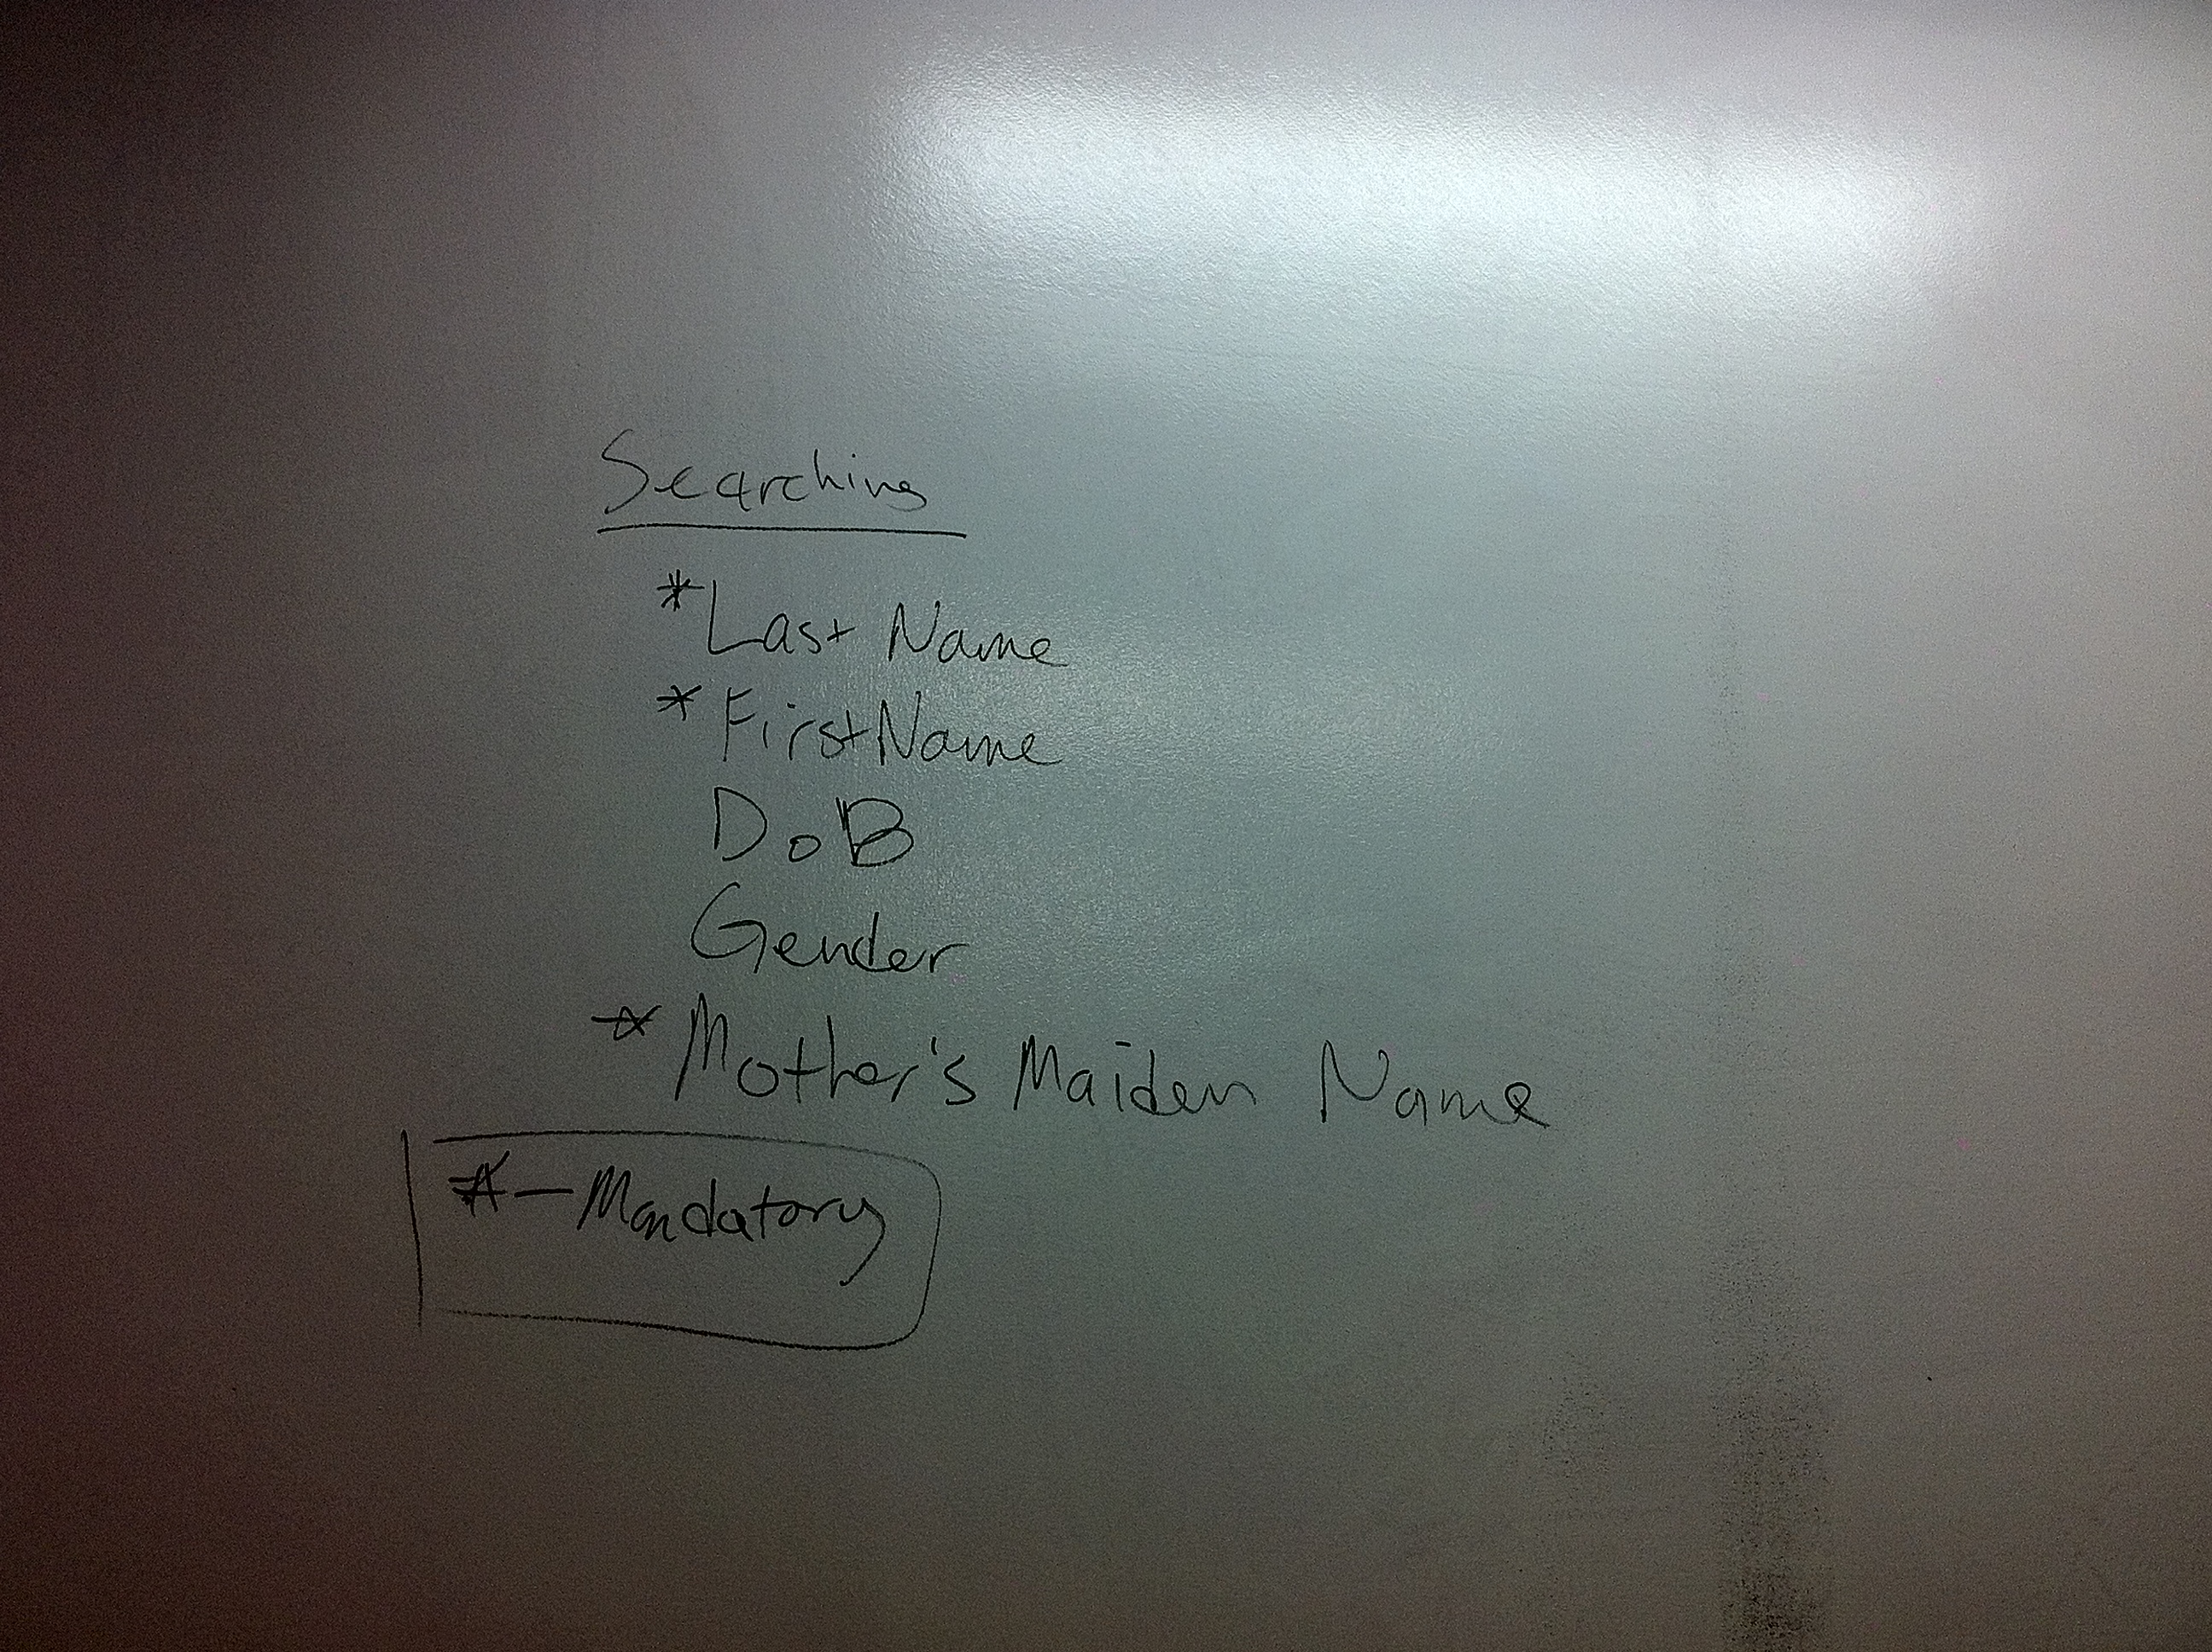 Searching
* Last Name
* First Name
DoB
Gender
* Mother's Maiden Name
* - Mandatory